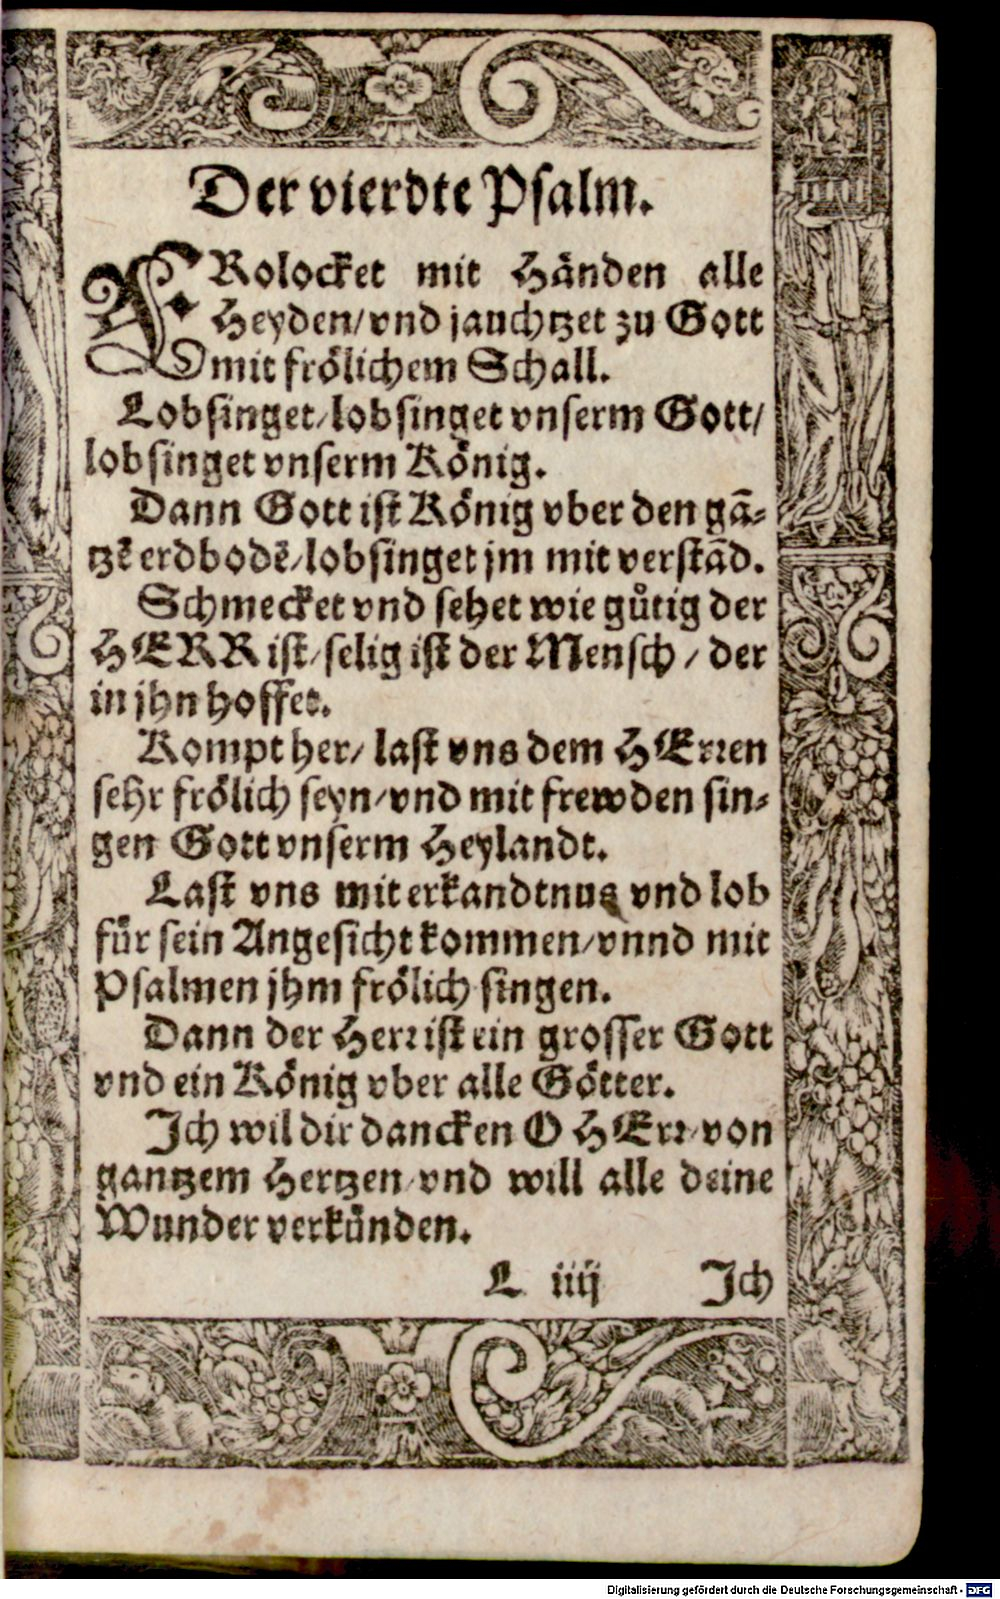 Der vierdte Psalm.
FRolocket mit Händen alle
Heyden/vnd jauchtzet zu Gott
mit frölichem Schall.
Lobsinget/lobsinget vnserm Gott/
lobsinget vnserm König.
Dann Gott ist König vber den gā-
tzē erdbodē/lobsinget jm mit verstād.
Schmecket vnd sehet wie gůtig der
HERR ist/selig ist der Mensch/der
in jhn hoffet.
Kompt her/last vns dem HErren
sehr frölich seyn/vnd mit frewden sin-
gen Gott vnserm Heylandt.
Last vns mit erkandtnus vnd lob
für sein Angesicht kommen/vnnd mit
Psalmen jhm frölich singen.
Dann der Herr ist ein grosser Gott
vnd ein König vber alle Götter.
Ich wil dir dancken O HErr/von
gantzem Hertzen/vnd will alle deine
Wunder verkünden.
L iiij Ich
Digitalisierung gefördert durch die Deutsche Forschungsgemeinschaft - DFG